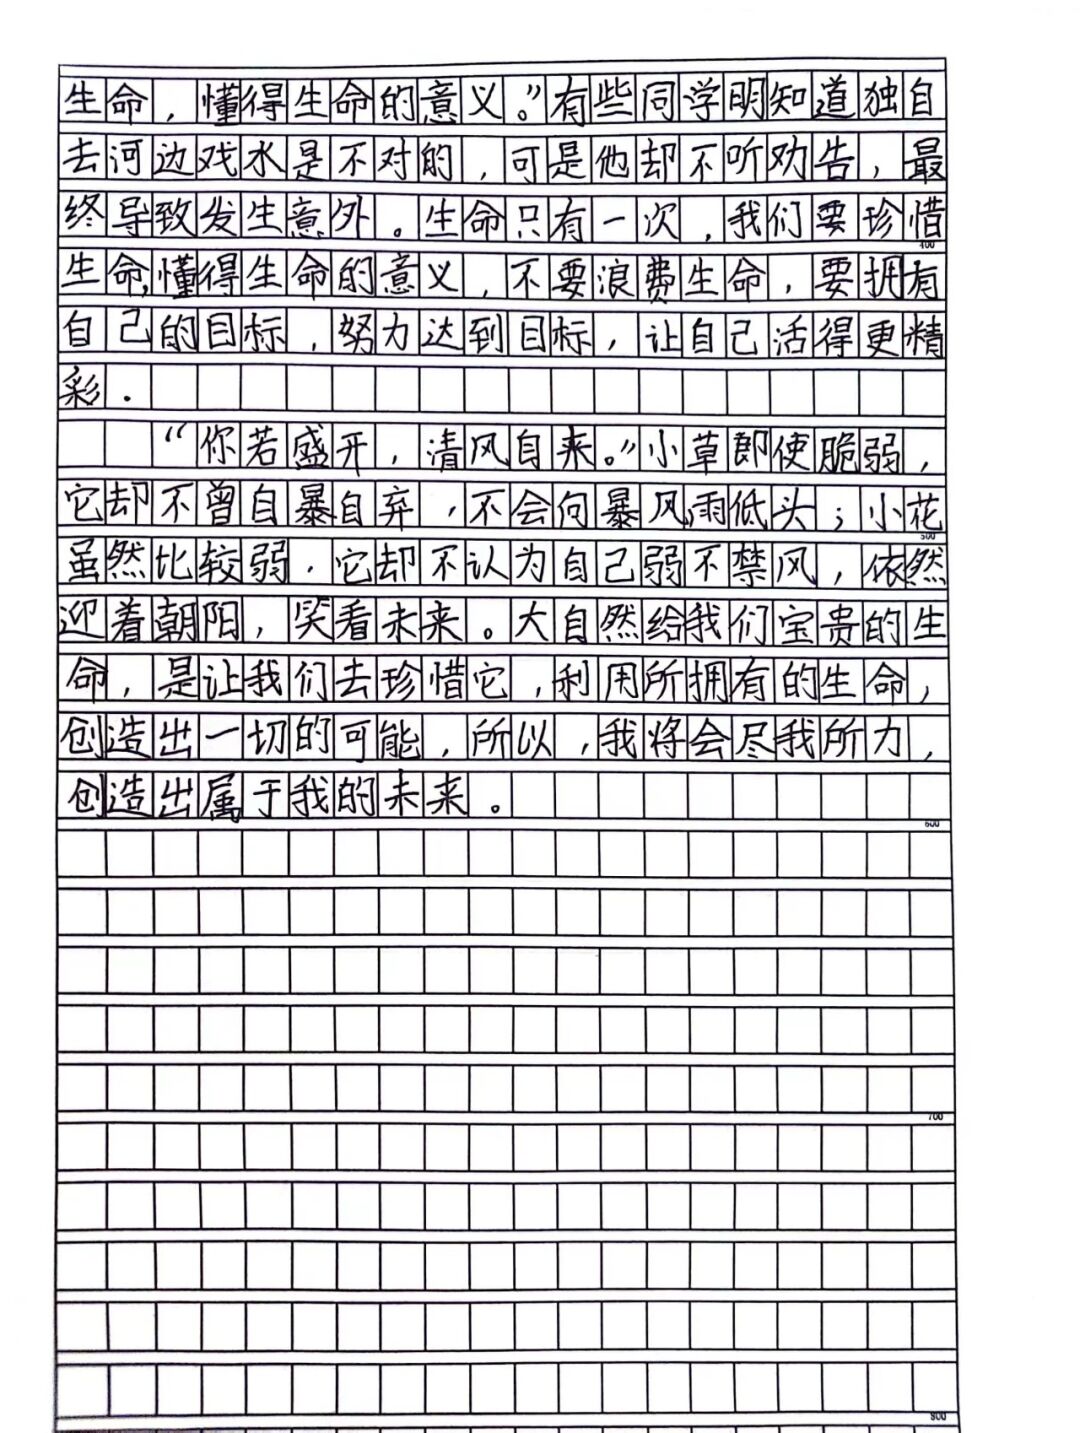 生命，懂得生命的意义。”有些同学明知道独自
去河边戏水是不对的，可是他却不听劝告，最
终导致发生意外。生命只有一次，我们要珍惜
400
生命，懂得生命的意义，不要浪费生命，要拥有
自己的目标，努力达到目标，让自己活得更精
彩．
“你若盛开，清风自来。”小草即使脆弱，
它却不曾自暴自弃，不会向暴风雨低头；小花
500
虽然比较弱．它却不认为自己弱不禁风，依然
迎着朝阳，笑看未来。大自然给我们宝贵的生
命，是让我们去珍惜它，利用所拥有的生命，
创造出一切的可能，所以，我将会尽我所力，
创造出属于我的未来。
600
700
800